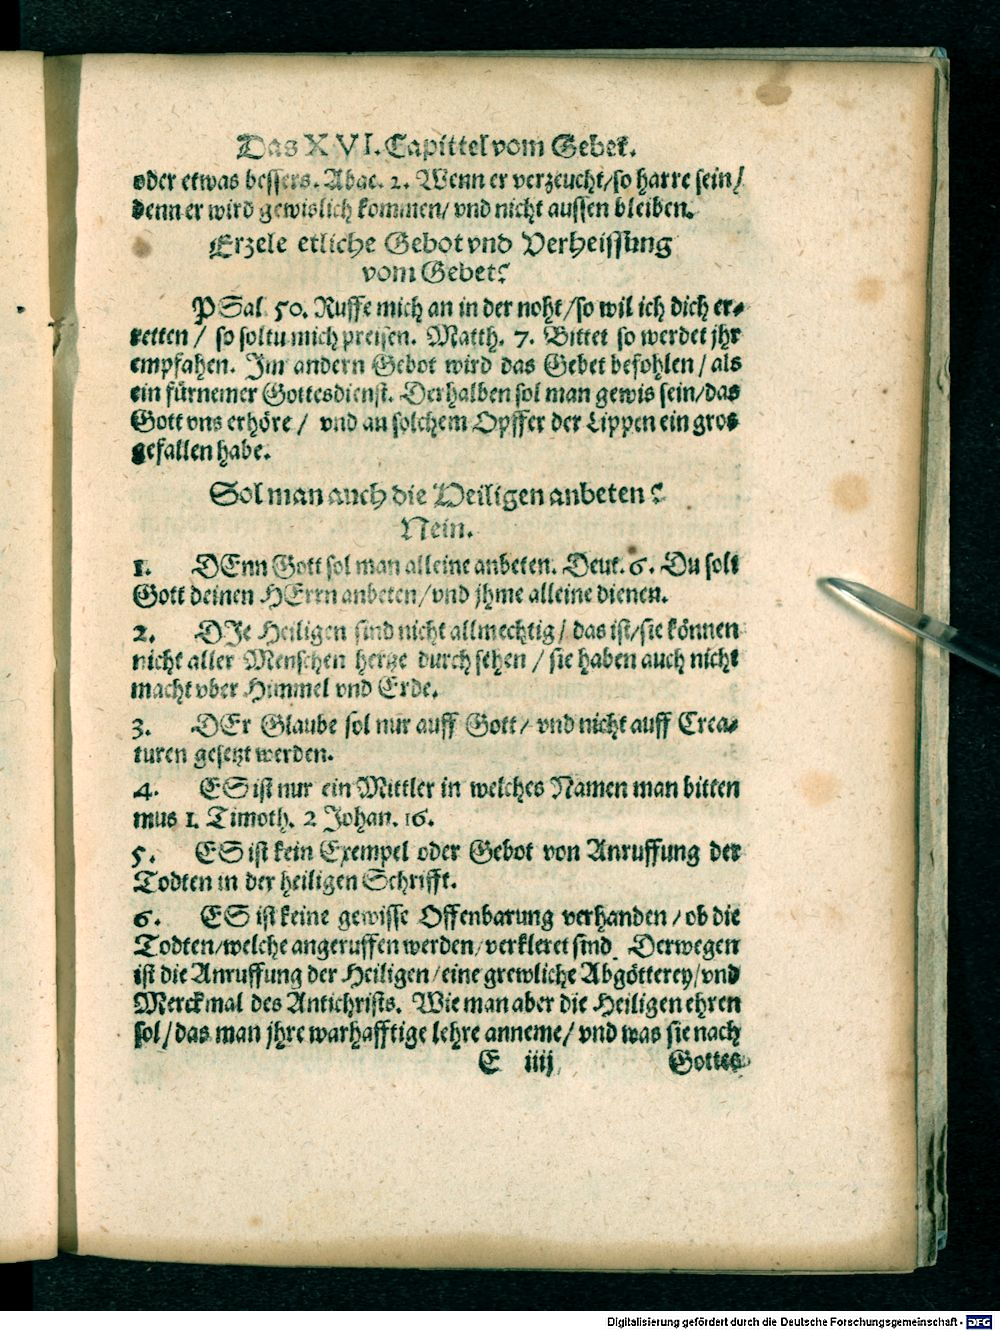 Das XVI. Capittel vom Gebet.
oder etwas bessers. Abac. 2. Wenn er verzeucht/so harre sein/
denn er wird gewislich kommen/ vnd nicht aussen bleiben.
Erzele etliche Gebot vnd Verheissung
vom Gebet?
PSal. 50. Ruffe mich an in der noht/so wil ich dich er-
retten / so soltu mich preisen. Matth. 7. Bittet so werdet jhr
empfahen. Im andern Gebot wird das Gebet befohlen / als
ein fürnemer Gottesdienst. Derhalben sol man gewis sein/das
Gott vns erhöre / vnd an solchem Opffer der Lippen ein gros
gefallen habe.
Sol man auch die Heiligen anbeten?
Nein.
1. DEnn Gott sol man alleine anbeten. Deut. 6. Du solt
Gott deinen HErrn anbeten/vnd jhme alleine dienen.
2. DIe Heiligen sind nicht allmechtig/ das ist/sie können
nicht aller Menschen herze durch sehen / sie haben auch nicht
macht vber Himmel vnd Erde.
3. DEr Glaube sol nur auff Gott/ vnd nicht auff Crea-
turen gesetzt werden.
4. ES ist nur ein Mittler in welches Namen man bitten
mus 1. Timoth. 2 Johan. 16.
5. ES ist kein Exempel oder Gebot von Anruffung der
Todten in der heiligen Schrifft.
6. ES ist keine gewisse Offenbarung verhanden / ob die
Todten/welche angeruffen werden/verkleret sind. Derwegen
ist die Anruffung der Heiligen/eine grewliche Abgötterey/vnd
Merckmal des Antichrists. Wie man aber die Heiligen ehren
sol/das man jhre warhafftige lehre anneme/ vnd was sie nach
E iiij Gottes
Digitalisierung gefördert durch die Deutsche Forschungsgemeinschaft - DFG